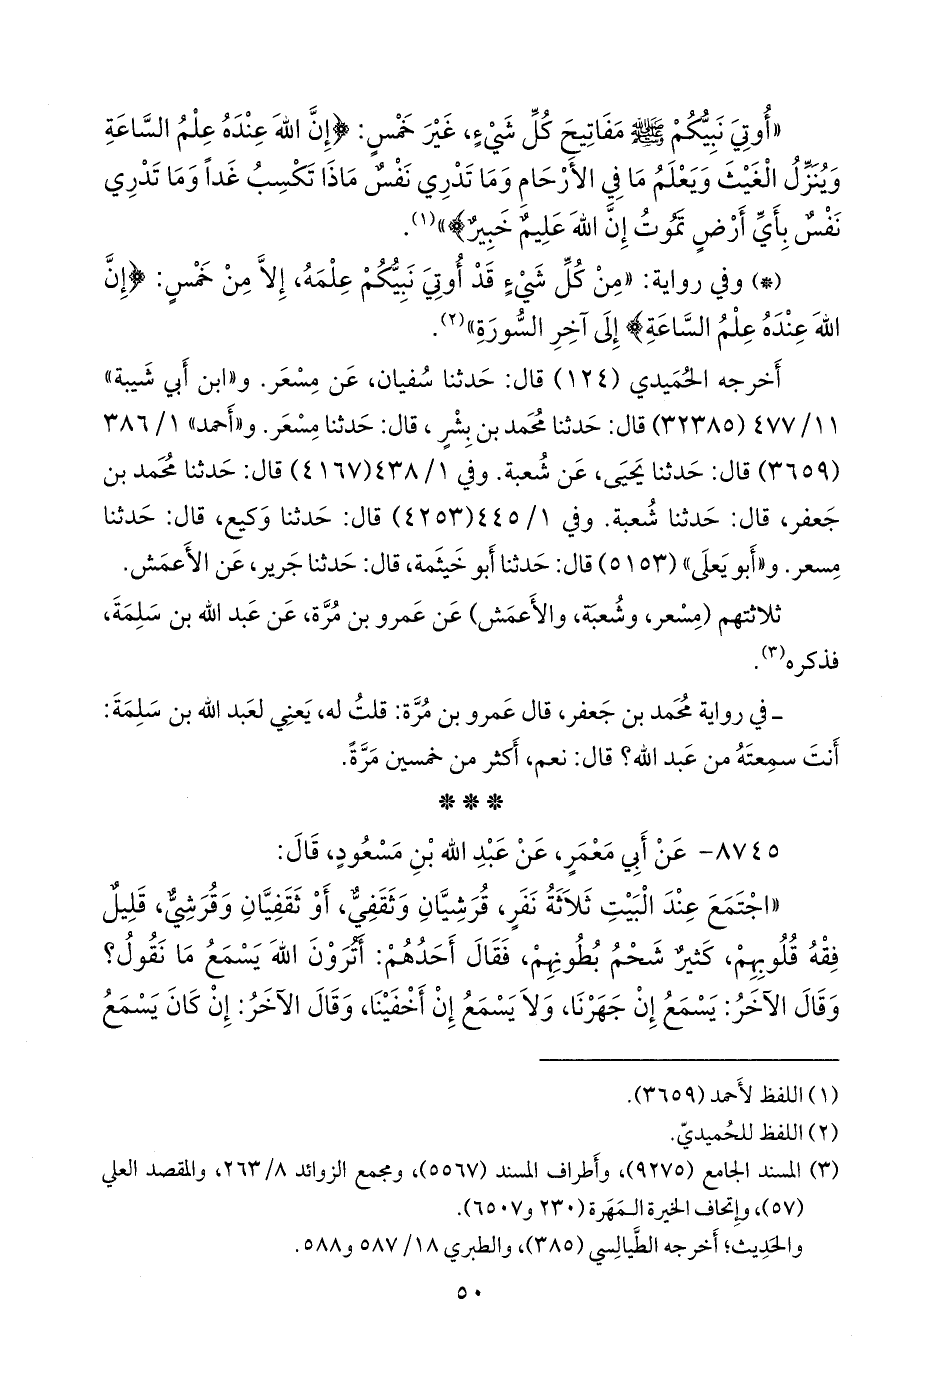 «أُوتِيَ نَبِيُّكُمْ ﷺ مَفَاتِيحَ كُلِّ شَيْءٍ، غَيْرَ خَمْسٍ: ﴿إِنَّ اللهَ عِنْدَهُ عِلْمُ السَّاعَةِ
وَيُنَزِّلُ الْغَيْثَ وَيَعْلَمُ مَا فِي الأَرْحَامِ وَمَا تَدْرِي نَفْسٌ مَاذَا تَكْسِبُ غَداً وَمَا تَدْرِي
نَفْسٌ بِأَيِّ أَرْضٍ تَمُوتُ إِنَّ اللهَ عَلِيمٌ خَبِيرٌ﴾»(١).
(*) وفي رواية: «مِنْ كُلِّ شَيْءٍ قَدْ أُوتِيَ نَبِيُّكُمْ عِلْمَهُ، إِلاَّ مِنْ خَمْسٍ: ﴿إِنَّ
اللهَ عِنْدَهُ عِلْمُ السَّاعَةِ﴾ إِلَى آخِرِ السُّورَةِ»(٢).
أَخرجه الحُمَيدي (١٢٤) قال: حَدثنا سُفيان، عَن مِسْعَر. و«ابن أَبي شَيبة»
١١/ ٤٧٧ (٣٢٣٨٥) قال: حَدثنا مُحَمد بن بِشْرٍ ، قال: حَدثنا مِسْعَر. و«أَحمد» ١/ ٣٨٦
(٣٦٥٩) قال: حَدثنا يَحيَى، عَن شُعبة. وفي ١/ ٤٣٨(٤١٦٧) قال: حَدثنا مُحَمد بن
جَعفر، قال: حَدثنا شُعبة. وفي ١/ ٤٤٥(٤٢٥٣) قال: حَدثنا وَكيع، قال: حَدثنا
مِسعر. و«أَبو يَعلَى» (٥١٥٣) قال: حَدثنا أَبو خَيثَمة، قال: حَدثنا جَرير، عَن الأَعمَش.
ثلاثتهم (مِسْعر، وشُعبَة، والأَعمَش) عَن عَمرو بن مُرَّة، عَن عَبد الله بن سَلِمَةَ،
فذكره(٣).
ـ في رواية مُحَمد بن جَعفر، قال عَمرو بن مُرَّة: قلتُ له، يَعنِي لعَبد الله بن سَلِمَةَ:
أَنتَ سمِعتَهُ من عَبد الله؟ قال: نعم، أَكثر من خمسين مَرَّةً.
* * *
٨٧٤٥- عَنْ أَبِي مَعْمَرٍ، عَنْ عَبْدِ اللهِ بْنِ مَسْعُودٍ، قَالَ:
«اجْتَمَعَ عِنْدَ الْبَيْتِ ثَلاَثَةُ نَفَرٍ، قُرَشِيَّانِ وَثَقَفِيٌّ، أَوْ ثَقَفِيَّانِ وَقُرَشِيٌّ، قَلِيلٌ
فِقْهُ قُلُوبِهِمْ، كَثِيرٌ شَحْمُ بُطُونِهِمْ، فَقَالَ أَحَدُهُمْ: أَتُرَوْنَ اللهَ يَسْمَعُ مَا نَقُولُ؟
وَقَالَ الآخَرُ: يَسْمَعُ إِنْ جَهَرْنَا، وَلاَ يَسْمَعُ إِنْ أَخْفَيْنَا، وَقَالَ الآخَرُ: إِنْ كَانَ يَسْمَعُ
(١) اللفظ لأَحمد (٣٦٥٩).
(٢) اللفظ للحُميديّ.
(٣) المسند الجامع (٩٢٧٥)، وأَطراف المسند (٥٥٦٧)، ومجمع الزوائد ٨/ ٢٦٣، والمقصد العلي
(٥٧)، وإِتحاف الخيرة المَهَرة (٢٣٠ و٦٥٠٧).
والحَدِيث؛ أَخرجه الطَّيالِسي (٣٨٥)، والطبري ١٨/ ٥٨٧ و٥٨٨.
٥٠